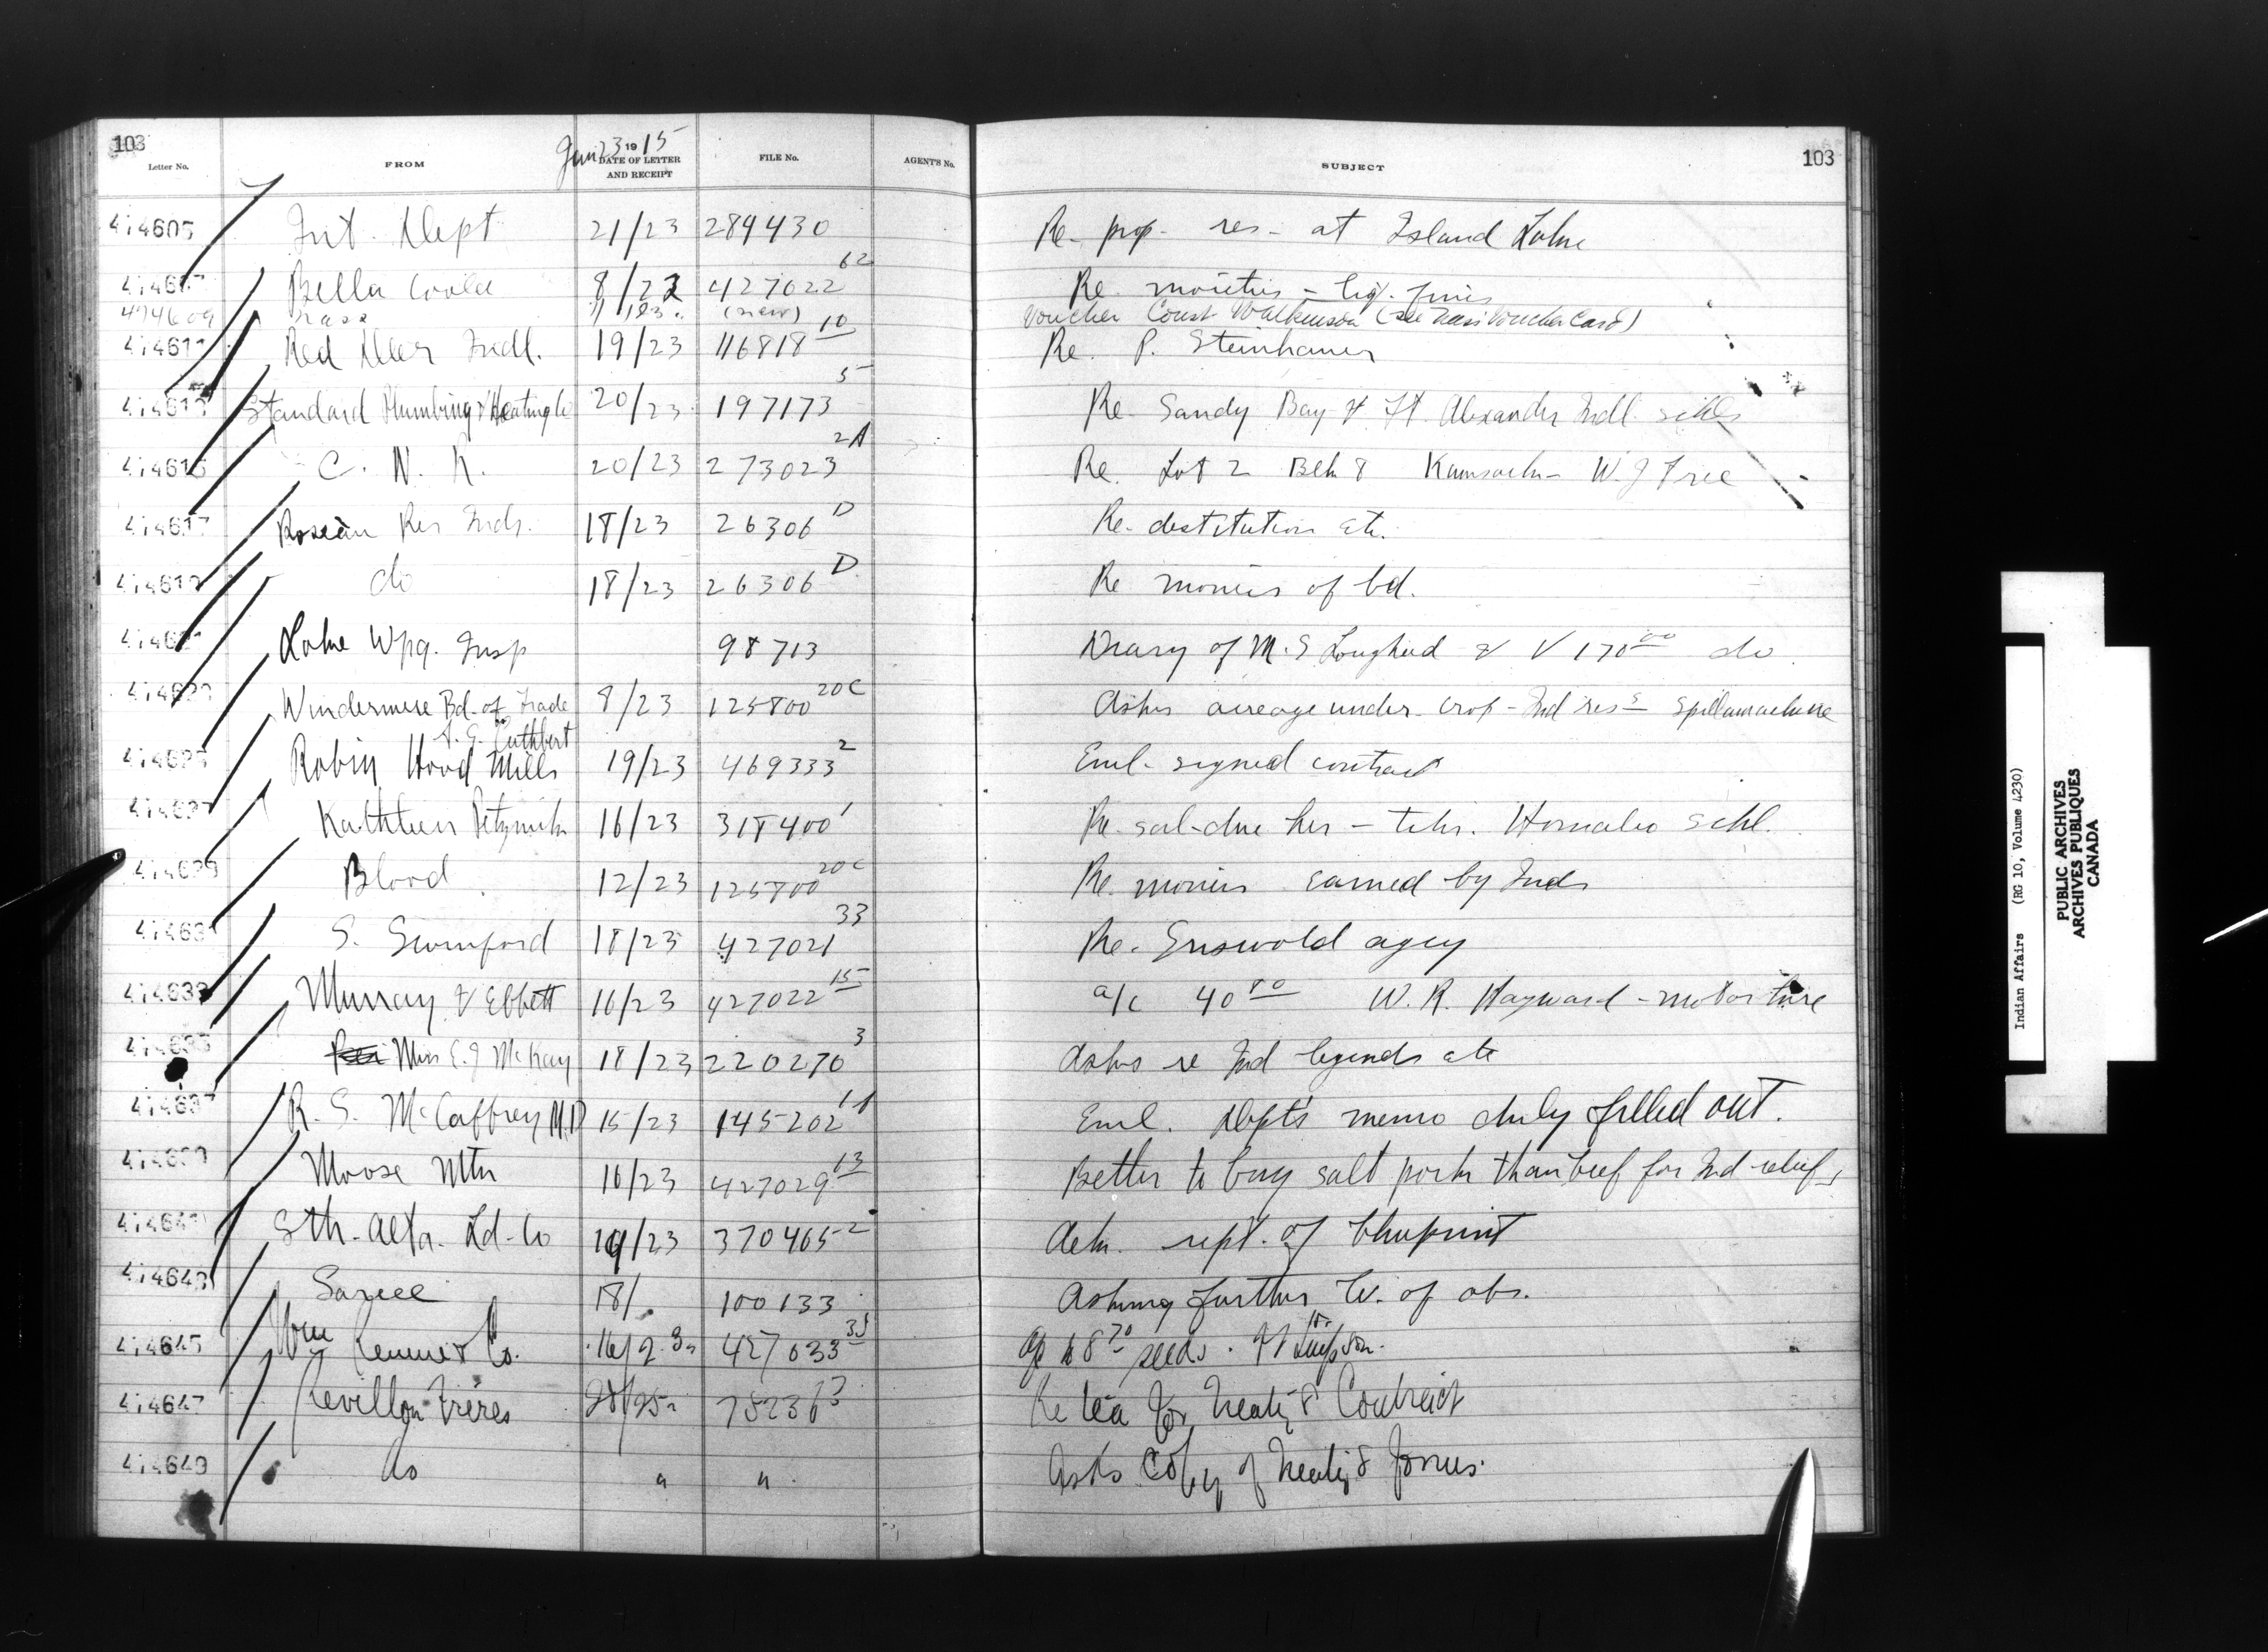 103
Letter No. FROM DATE OF LETTER AND RECEIPT FILE No. AGENT'S No. SUBJECT
Jun 23 1915
103
474605 Int. Dept 21/23 289430 Re- prop- res- at Island Lake
47460 Bella Coola 8/23 427022 62 Re. moieties - liq. fines
474609 Nass (new) Voucher Const Watkinson (see Nass Voucher Card)
474611 Red Deer Indl. 19/23 116818 10 Re. P. Steinhauer
474613 Standard Plumbing & Heating Co 20/23 197173 5 Re- Sandy Bay & Ft. Alexander Indl. schls
474615 C. N. R. 20/23 273023 2A Re. Lot 2 Blk 8 Kamsack- W. J Free
474617 Roseau Res Inds. 18/23 26306 D Re- destitution etc.
474619 do 18/23 26306 D Re monies of bd.
47462 Lake Wpg. Insp 98713 Diary of M. S Lougheed & V 170 00 do
47462 Windermere Bd. of Trade 8/23 125800 20C Asks acreage under- crop - Ind res s Spillamacheene
A. G. Cuthbert
474625 Robin Hood Mills 19/23 469333 2 Encl- signed contract
474627 Kathleen 16/23 318400 1 Re- sal- due her - tchr. Homalco schl.
474629 Blood 12/23 125800 20C Re. monies earned by Inds
47463 S. Swinford 18/23 427021 33 Re. Griswold agcy
474633 Murray & Ebbett 16/23 427022 15 a/c 40 80 W. R. Hayward - motor hire
474635 Miss E. J McKay 18/23 220270 3 Asks re Ind legends etc
474637 R. S. McCaffrey M.D 15/23 145202 Encl. Dept's memo duly filled out.
474639 Moose Mtn 16/23 427029 13 Better to buy salt pork than beef for Ind relief
47464 Sth- Alta. Ld- Co 19/23 370465 2 Ack. rept. of blueprint
474643 Sarcee 18/ 100133 Asking further lv. of abs.
474645 Wm Rennie & Co. 16/23 427033 a/c 68 70 seeds.
474647 Revillon Frères 75236 Re tea for Treaty 8 Contract
474649 do " " Asks Copy of Treaty 8 forms.
Indian Affairs (RG 10, Volume 4230)
PUBLIC ARCHIVES
ARCHIVES PUBLIQUES
CANADA